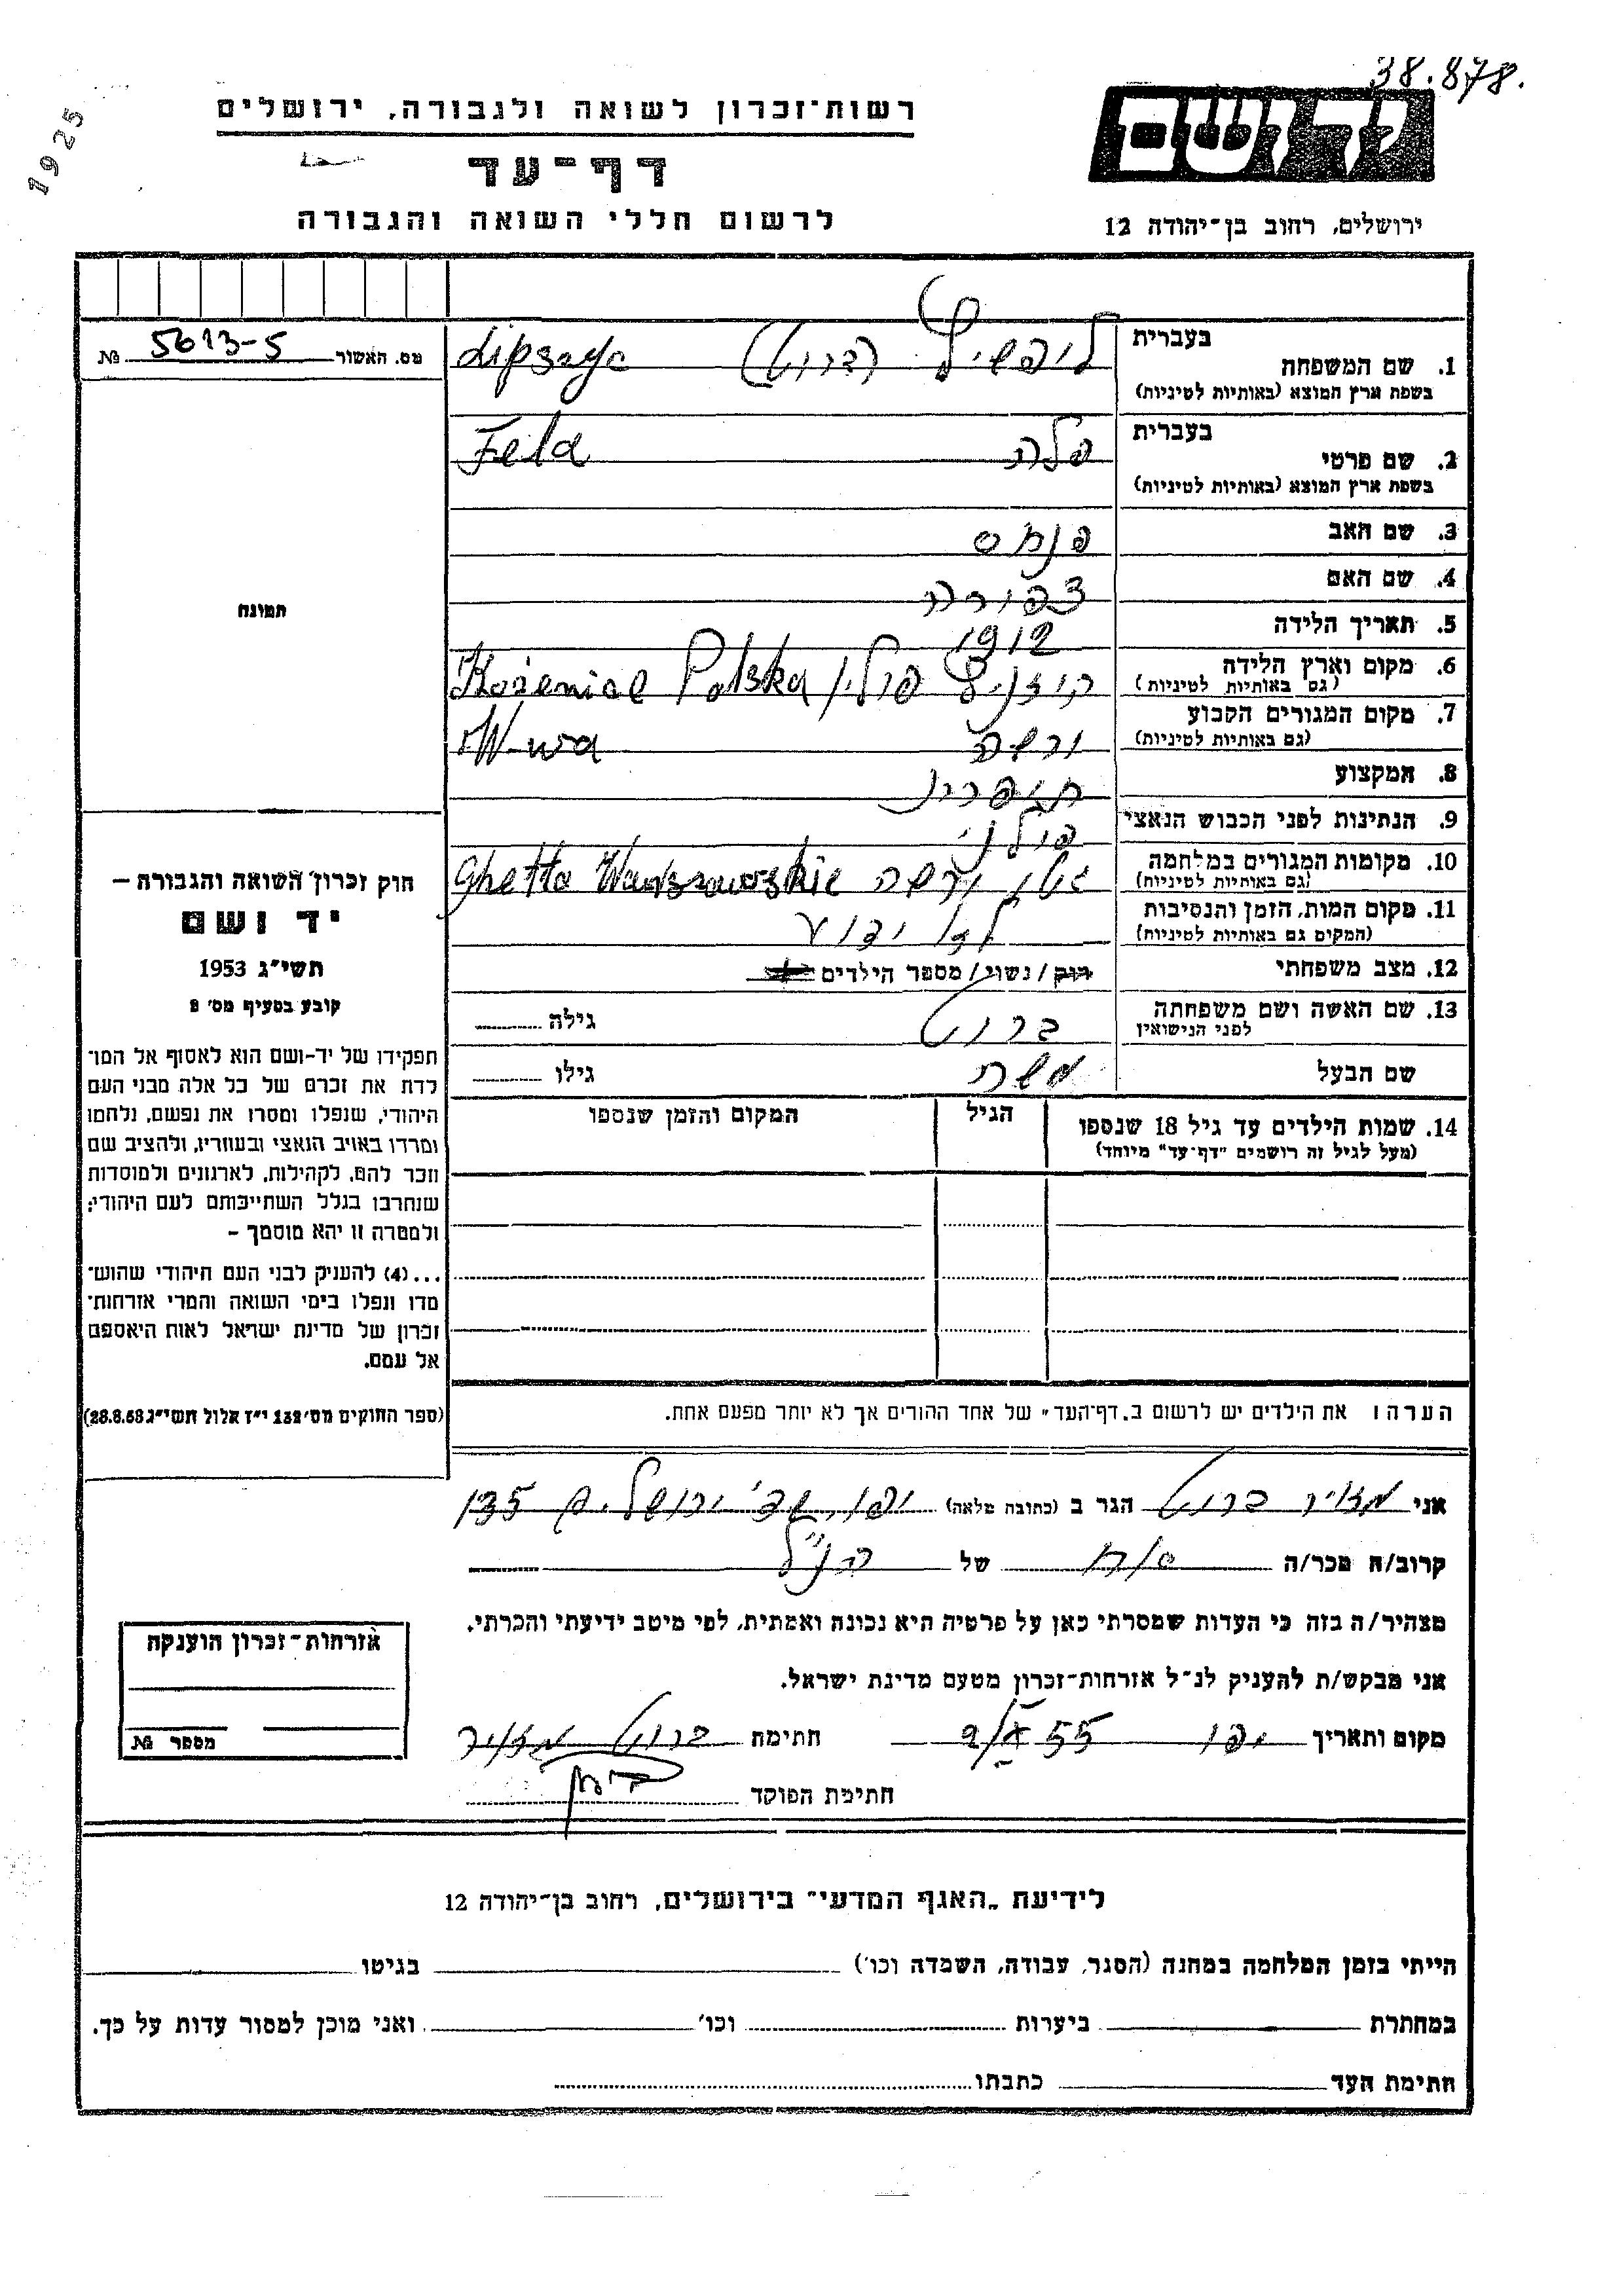 38.878.
1925
רשות־זכרון לשואה ולגבורה, ירושלים
דף־עד
לרשום חללי השואה והגבורה
יד ושם
ירושלים, רחוב בן־יהודה 12
מס. האשור 5613-5 №
בעברית
1. שם המשפחה ליפשיץ (ברוט) Lipszyc
בשפת ארץ המוצא (באותיות לטיניות)
בעברית
2. שם פרטי פלה Fela
בשפת ארץ המוצא (באותיות לטיניות)
3. שם האב פנחס
4. שם האם צפורה
5. תאריך הלידה 1912
6. מקום וארץ הלידה קוזניץ פולין Kożenice Polska
(גם באותיות לטיניות)
7. מקום המגורים הקבוע ורשה W-wa
(גם באותיות לטיניות)
8. המקצוע
9. הנתינות לפני הכבוש הנאצי פולני
10. מקומות המגורים במלחמה גטו ורשה Ghetto Warszawskie
(גם באותיות לטיניות)
11. מקום המות, הזמן והנסיבות לא ידוע
(המקום גם באותיות לטיניות)
12. מצב משפחתי רוק / נשוי / מספר הילדים
13. שם האשה ושם משפחתה ברוט גילה
לפני הנישואין
שם הבעל משה גילו
14. שמות הילדים עד גיל 18 שנספו הגיל המקום והזמן שנספו
(מעל לגיל זה רושמים "דף־עד" מיוחד)
הערה: את הילדים יש לרשום ב„דף־העד" של אחד ההורים אך לא יותר מפעם אחת.
תמונה
חוק זכרון השואה והגבורה —
יד ושם
תשי״ג 1953
קובע בסעיף מס׳ 2
תפקידו של יד־ושם הוא לאסוף אל המו־
לדת את זכרם של כל אלה מבני העם
היהודי, שנפלו ומסרו את נפשם, נלחמו
ומרדו באויב הנאצי ובעוזריו, ולהציב שם
וזכר להם, לקהילות, לארגונים ולמוסדות
שנחרבו בגלל השתייכותם לעם היהודי;
ולמטרה זו יהא מוסמך –
...(4) להעניק לבני העם היהודי שהוש־
מדו ונפלו בימי השואה והמרי אזרחות־
זכרון של מדינת ישראל לאות היאספם
אל עמם.
(ספר החוקים מס׳ 132 י״ז אלול תשי״ג 28.8.53)
אני מאיר ברוט הגר ב (כתובת מלאה) יפו, שד׳ ירושלים 135
קרוב/ה מכר/ה אח של הנ״ל
מצהיר/ה בזה כי העדות שמסרתי כאן על פרטיה היא נכונה ואמתית, לפי מיטב ידיעתי והכרתי.
אני מבקש/ת להעניק לנ״ל אזרחות־זכרון מטעם מדינת ישראל.
מקום ותאריך יפו 55 חתימה ברוט מאיר
חתימת הפוקד
אזרחות־זכרון הוענקה
מספר №
לידיעת „האגף המדעי״ בירושלים, רחוב בן־יהודה 12
הייתי בזמן המלחמה במחנה (הסגר, עבודה, השמדה וכו׳) בגיטו
במחתרת ביערות וכו׳ ואני מוכן למסור עדות על כך.
חתימת העד כתבתו